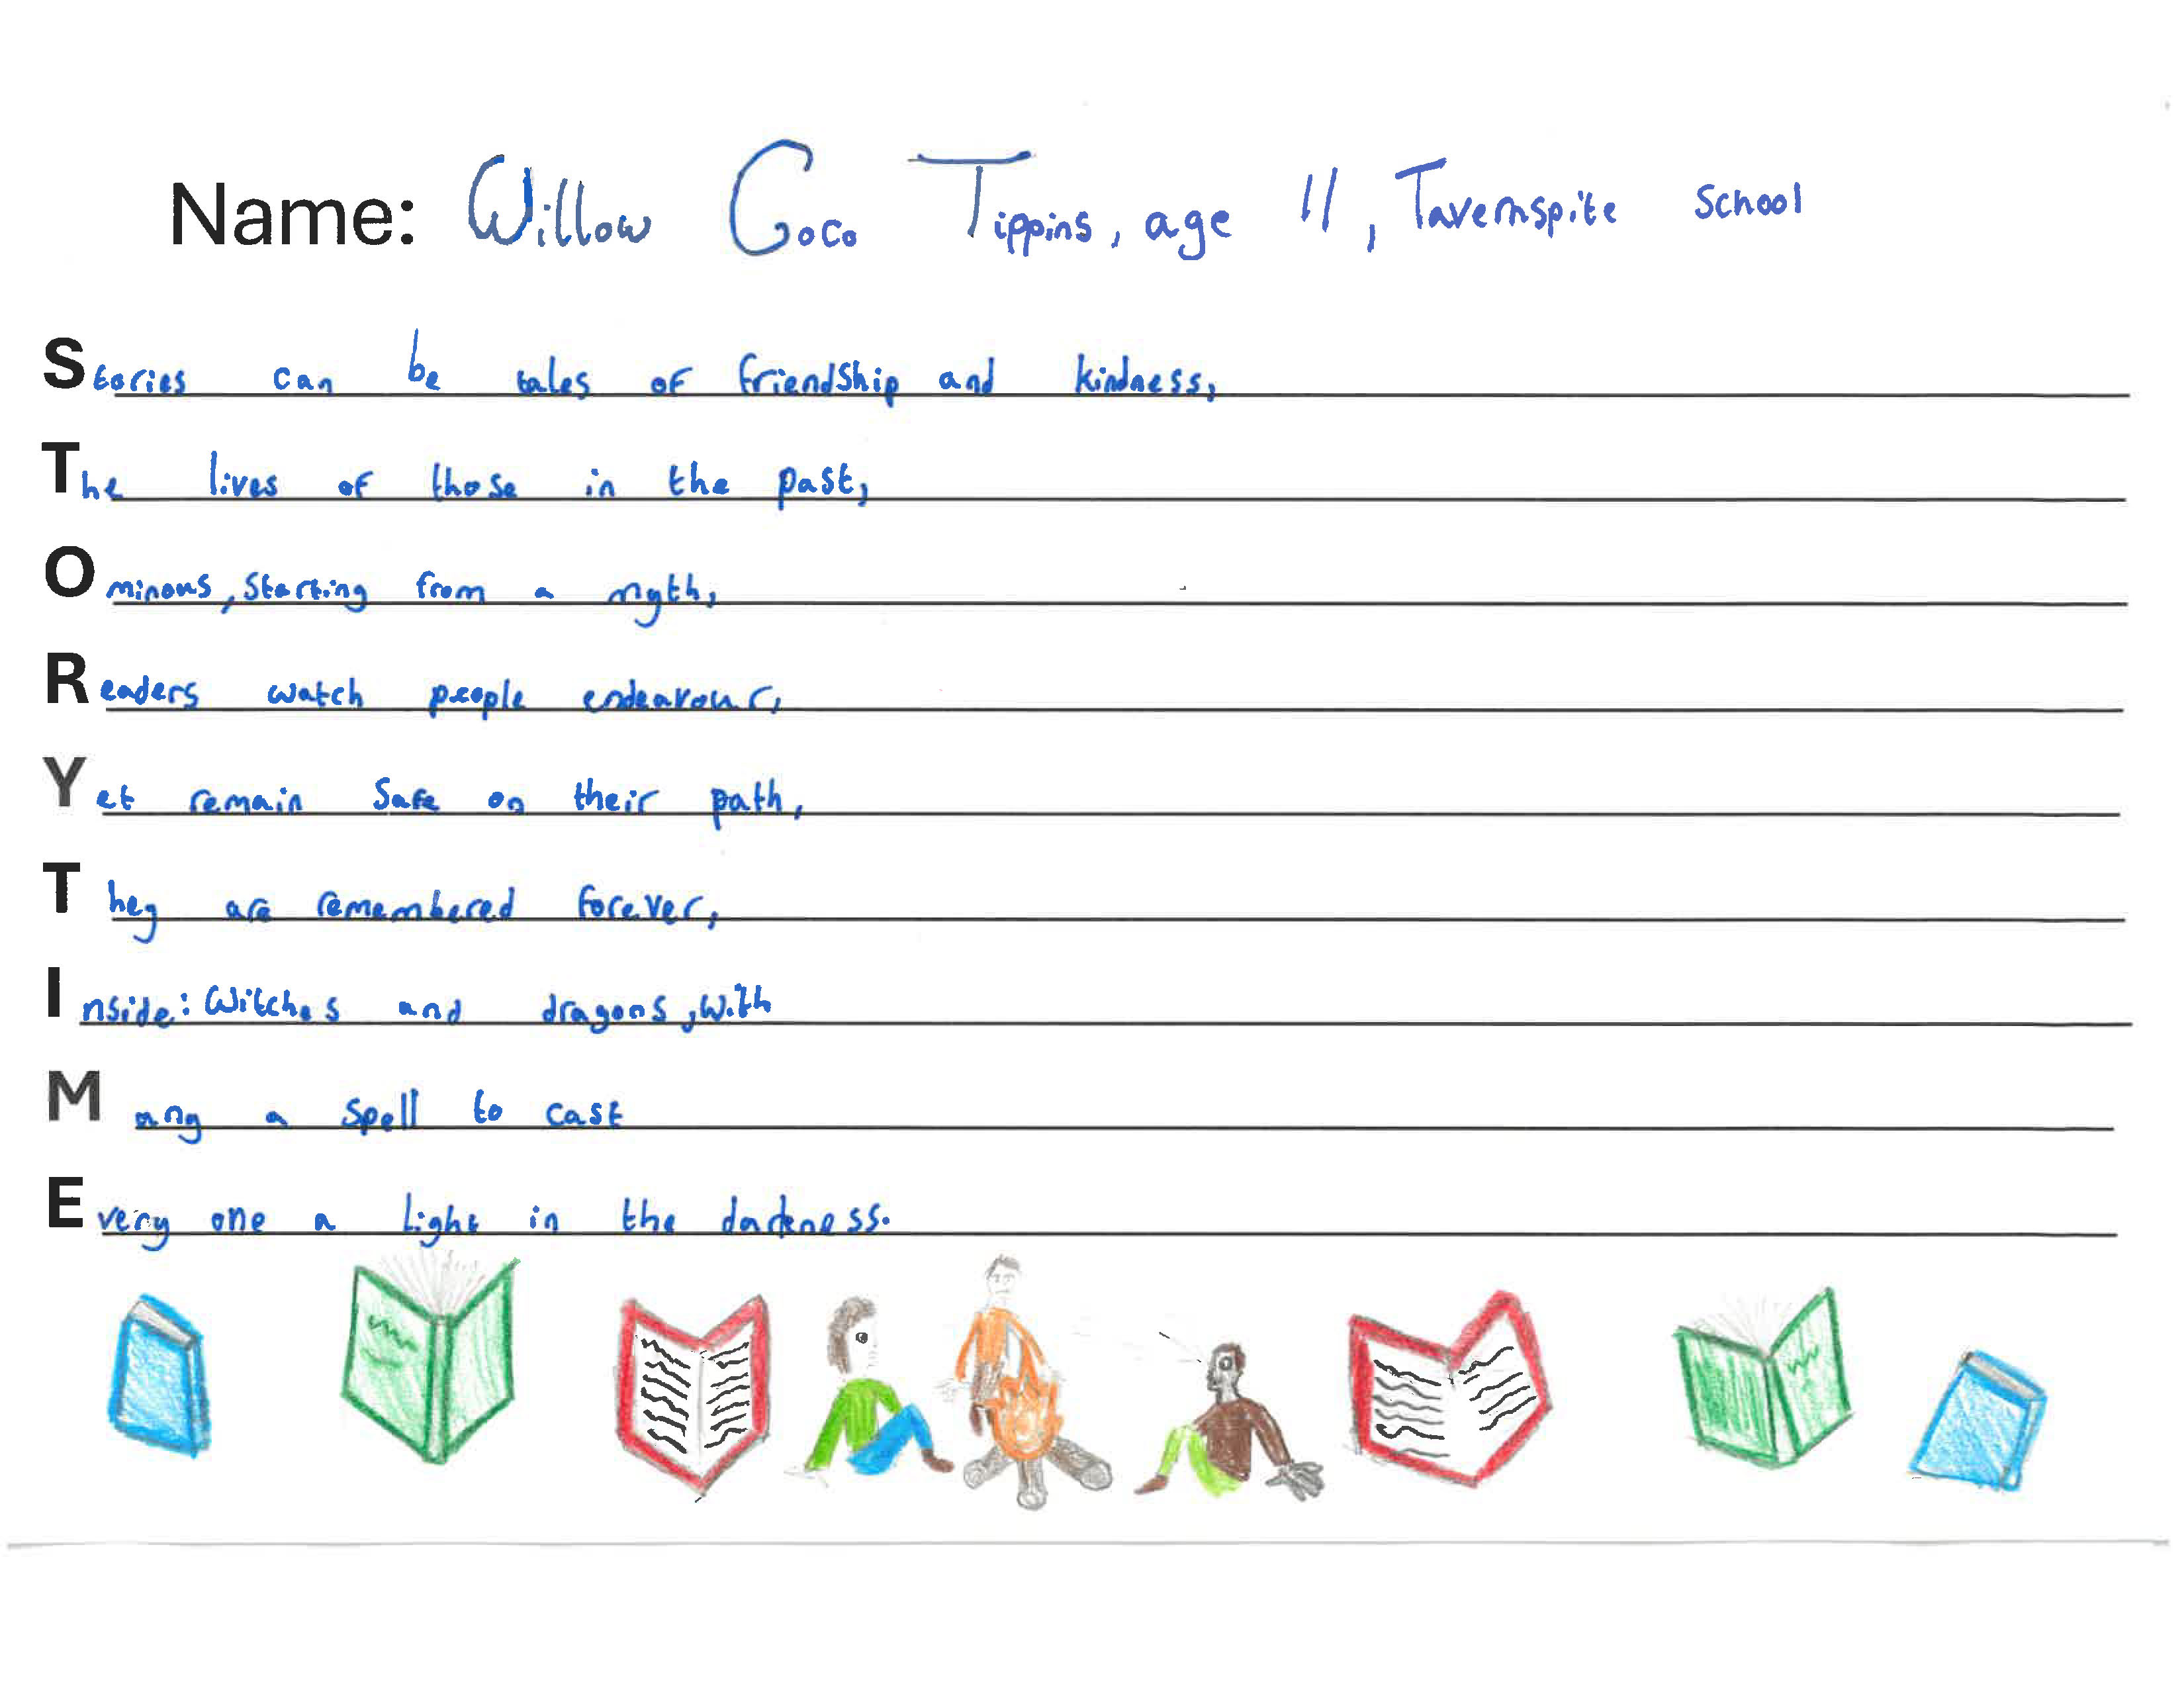 Name: Willow Coco Tippins, age 11, Tavernspite School
Stories can be tales of friendship and kindness,
The lives of those in the past,
Ominous, starting from a myth,
Readers watch people endeavour,
Yet remain safe on their path,
They are remembered forever,
Inside: Witches and dragons, with
Many a spell to cast
Every one a light in the darkness.